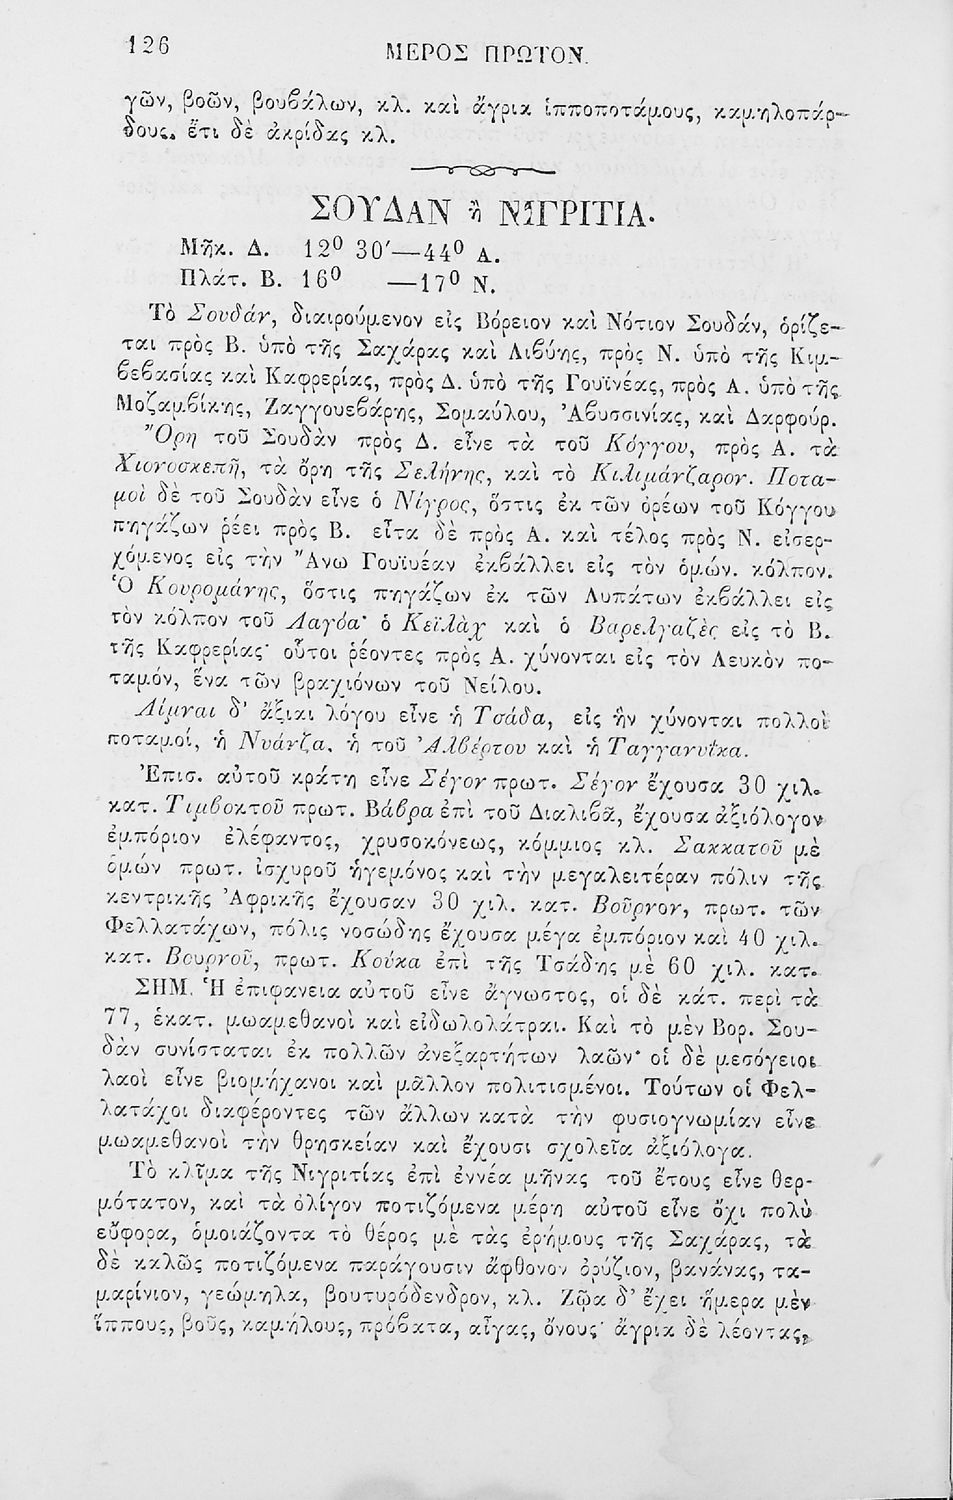 126
ΜΕΡΟΣ ΠΡΩΤΟΝ.
γῶν, βοῶν, βουβάλων, κλ. καὶ ἄγρια ἱπποποτάμους, καμηλοπάρ-
δους. ἔτι δὲ ἀκρίδας κλ.
ΣΟΥΔΑΝ ἢ ΝΙΓΡΙΤΙΑ.
Μῆκ. Δ. 12⁰ 30′—44⁰ Α.
Πλάτ. Β. 16⁰ —17⁰ Ν.
Τὸ Σουδάν, διαιρούμενον εἰς Βόρειον καὶ Νότιον Σουδάν, ὁρίζε-
ται πρὸς Β. ὑπὸ τῆς Σαχάρας καὶ Λιβύης, πρὸς Ν. ὑπὸ τῆς Κιμ-
βεβασίας καὶ Καφρερίας, πρὸς Δ. ὑπὸ τῆς Γουϊνέας, πρὸς Α. ὑπὸ τῆς
Μοζαμβίκης, Ζαγγουεβάρης, Σομαύλου, Ἀβυσσινίας, καὶ Δαρφούρ.
Ὄρη τοῦ Σουδὰν πρὸς Δ. εἶνε τὰ τοῦ Κόγγου, πρὸς Α. τὰ
Χιονοσκεπῆ, τὰ ὄρη τῆς Σελήνης, καὶ τὸ Κιλιμάνζαρον. Ποτα-
μοὶ δὲ τοῦ Σουδὰν εἶνε ὁ Νίγρος, ὅστις ἐκ τῶν ὀρέων τοῦ Κόγγου
πηγάζων ῥέει πρὸς Β. εἶτα δὲ πρὸς Α. καὶ τέλος πρὸς Ν. εἰσερ-
χόμενος εἰς τὴν Ἄνω Γουϊυέαν ἐκβάλλει εἰς τὸν ὁμών. κόλπον.
Ὁ Κουρομάνης, ὅστις πηγάζων ἐκ τῶν Λυπάτων ἐκβάλλει εἰς
τὸν κόλπον τοῦ Λαγόα· ὁ Κεϊλὰχ καὶ ὁ Βαρελγαζὲς εἰς τὸ Β.
τῆς Καφρερίας· οὗτοι ῥέοντες πρὸς Α. χύνονται εἰς τὸν Λευκὸν πο-
ταμόν, ἕνα τῶν βραχιόνων τοῦ Νείλου.
Λίμναι δ' ἄξιαι λόγου εἶνε ἡ Τσάδα, εἰς ἣν χύνονται πολλοὶ
ποταμοί, ἡ Νυάνζα, ἡ τοῦ Ἀλβέρτου καὶ ἡ Ταγγανύκα.
Ἐπισ. αὐτοῦ κράτη εἶνε Σέγον πρωτ. Σέγον ἔχουσα 30 χιλ.
κατ. Τιμβοκτοῦ πρωτ. Βάβρα ἐπὶ τοῦ Διαλιβᾶ, ἔχουσα ἀξιόλογον
ἐμπόριον ἐλέφαντος, χρυσοκόνεως, κόμμιος κλ. Σακκατοῦ μὲ
ὁμών πρωτ. ἰσχυροῦ ἡγεμόνος καὶ τὴν μεγαλειτέραν πόλιν τῆς
κεντρικῆς Ἀφρικῆς ἔχουσαν 30 χιλ. κατ. Βοῦρνον, πρωτ. τῶν
Φελλατάχων, πόλις νοσώδης ἔχουσα μέγα ἐμπόριον καὶ 40 χιλ.
κατ. Βουρνοῦ, πρωτ. Κούκα ἐπὶ τῆς Τσάδης μὲ 60 χιλ. κατ.
ΣΗΜ. Ἡ ἐπιφανεια αὐτοῦ εἶνε ἄγνωστος, οἱ δὲ κάτ. περὶ τὰ
77, ἑκατ. μωαμεθανοὶ καὶ εἰδωλολάτραι. Καὶ τὸ μὲν Βορ. Σου-
δὰν συνίσταται ἐκ πολλῶν ἀνεξαρτήτων λαῶν· οἱ δὲ μεσόγειοι
λαοὶ εἶνε βιομήχανοι καὶ μᾶλλον πολιτισμένοι. Τούτων οἱ Φελ-
λατάχοι διαφέροντες τῶν ἄλλων κατὰ τὴν φυσιογνωμίαν εἶνε
μωαμεθανοὶ τὴν θρησκείαν καὶ ἔχουσι σχολεῖα ἀξιόλογα.
Τὸ κλῖμα τῆς Νιγριτίας ἐπὶ ἐννέα μῆνας τοῦ ἔτους εἶνε θερ-
μότατον, καὶ τὰ ὀλίγον ποτιζόμενα μέρη αὐτοῦ εἶνε ὄχι πολὺ
εὔφορα, ὁμοιάζοντα τὸ θέρος μὲ τὰς ἐρήμους τῆς Σαχάρας, τὰ
δὲ καλῶς ποτιζόμενα παράγουσιν ἄφθονον ὀρύζιον, βανάνας, τα-
μαρίνιον, γεώμηλα, βουτυρόδενδρον, κλ. Ζῷα δ' ἔχει ἥμερα μὲν
ἵππους, βοῦς, καμήλους, πρόβατα, αἶγας, ὄνους· ἄγρια δὲ λέοντας,